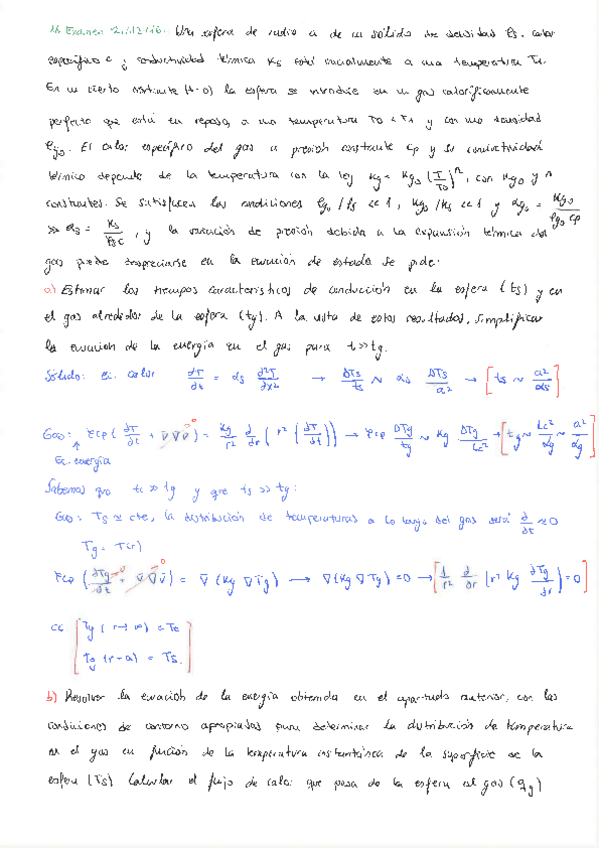 Examen Una esfera de radio a de un sólido de densidad ρs, calor
específico c y conductividad térmica Ks está inicialmente a una temperatura T1.
En un cierto instante (t=0) la esfera se introduce en un gas caloríficamente
perfecto que está en reposo, a una temperatura T0 < T1 y con una densidad
ρg0. El calor específico del gas a presión constante cp y su conductividad
térmica depende de la temperatura con la ley Kg = Kg0 (T/T0)^n, con Kg0 y n
constantes. Se satisfacen las condiciones ρg0/ρs << 1, Kg0/Ks << 1 y αg0 = Kg0/(ρg0 cp)
>> αs = Ks/(ρs c), y la variación de presión debida a la expansión térmica del
gas puede despreciarse en la ecuación de estado. Se pide:
a) Estimar los tiempos característicos de conducción en la esfera (ts) y en
el gas alrededor de la esfera (tg). A la vista de estos resultados, simplificar
la ecuación de la energía en el gas para t >> tg.
Sólido: ec. calor dT/dt = αs d²T/dx² → ΔTs/ts ~ αs ΔTs/a² → [ts ~ a²/αs]
Gas: ρcp (dT/dt + v∇v) = Kg/r² d/dr (r² (dT/dt)) → ρcp ΔTg/tg ~ Kg ΔTg/Lc² → [tg ~ Lc²/αg ~ a²/αg]
Ec. energía
Sabemos que >> tg y que ts >> tg:
Gas: Ts ≈ cte, la distribución de temperaturas a lo largo del gas será d/dt ≈ 0
Tg = T(r)
ρcp (dTg/dt + v∇v) = ∇(Kg ∇Tg) → ∇(Kg ∇Tg) = 0 → [1/r² d/dr (r² Kg dTg/dr) = 0]
CC [Tg (r→∞) = T0
Tg (r=a) = Ts]
b) Resolver la ecuación de la energía obtenida en el apartado anterior, con las
condiciones de contorno apropiadas para determinar la distribución de temperatura
en el gas en función de la temperatura instantánea de la superficie de la
esfera (Ts). Calcular el flujo de calor que pasa de la esfera al gas (qg)